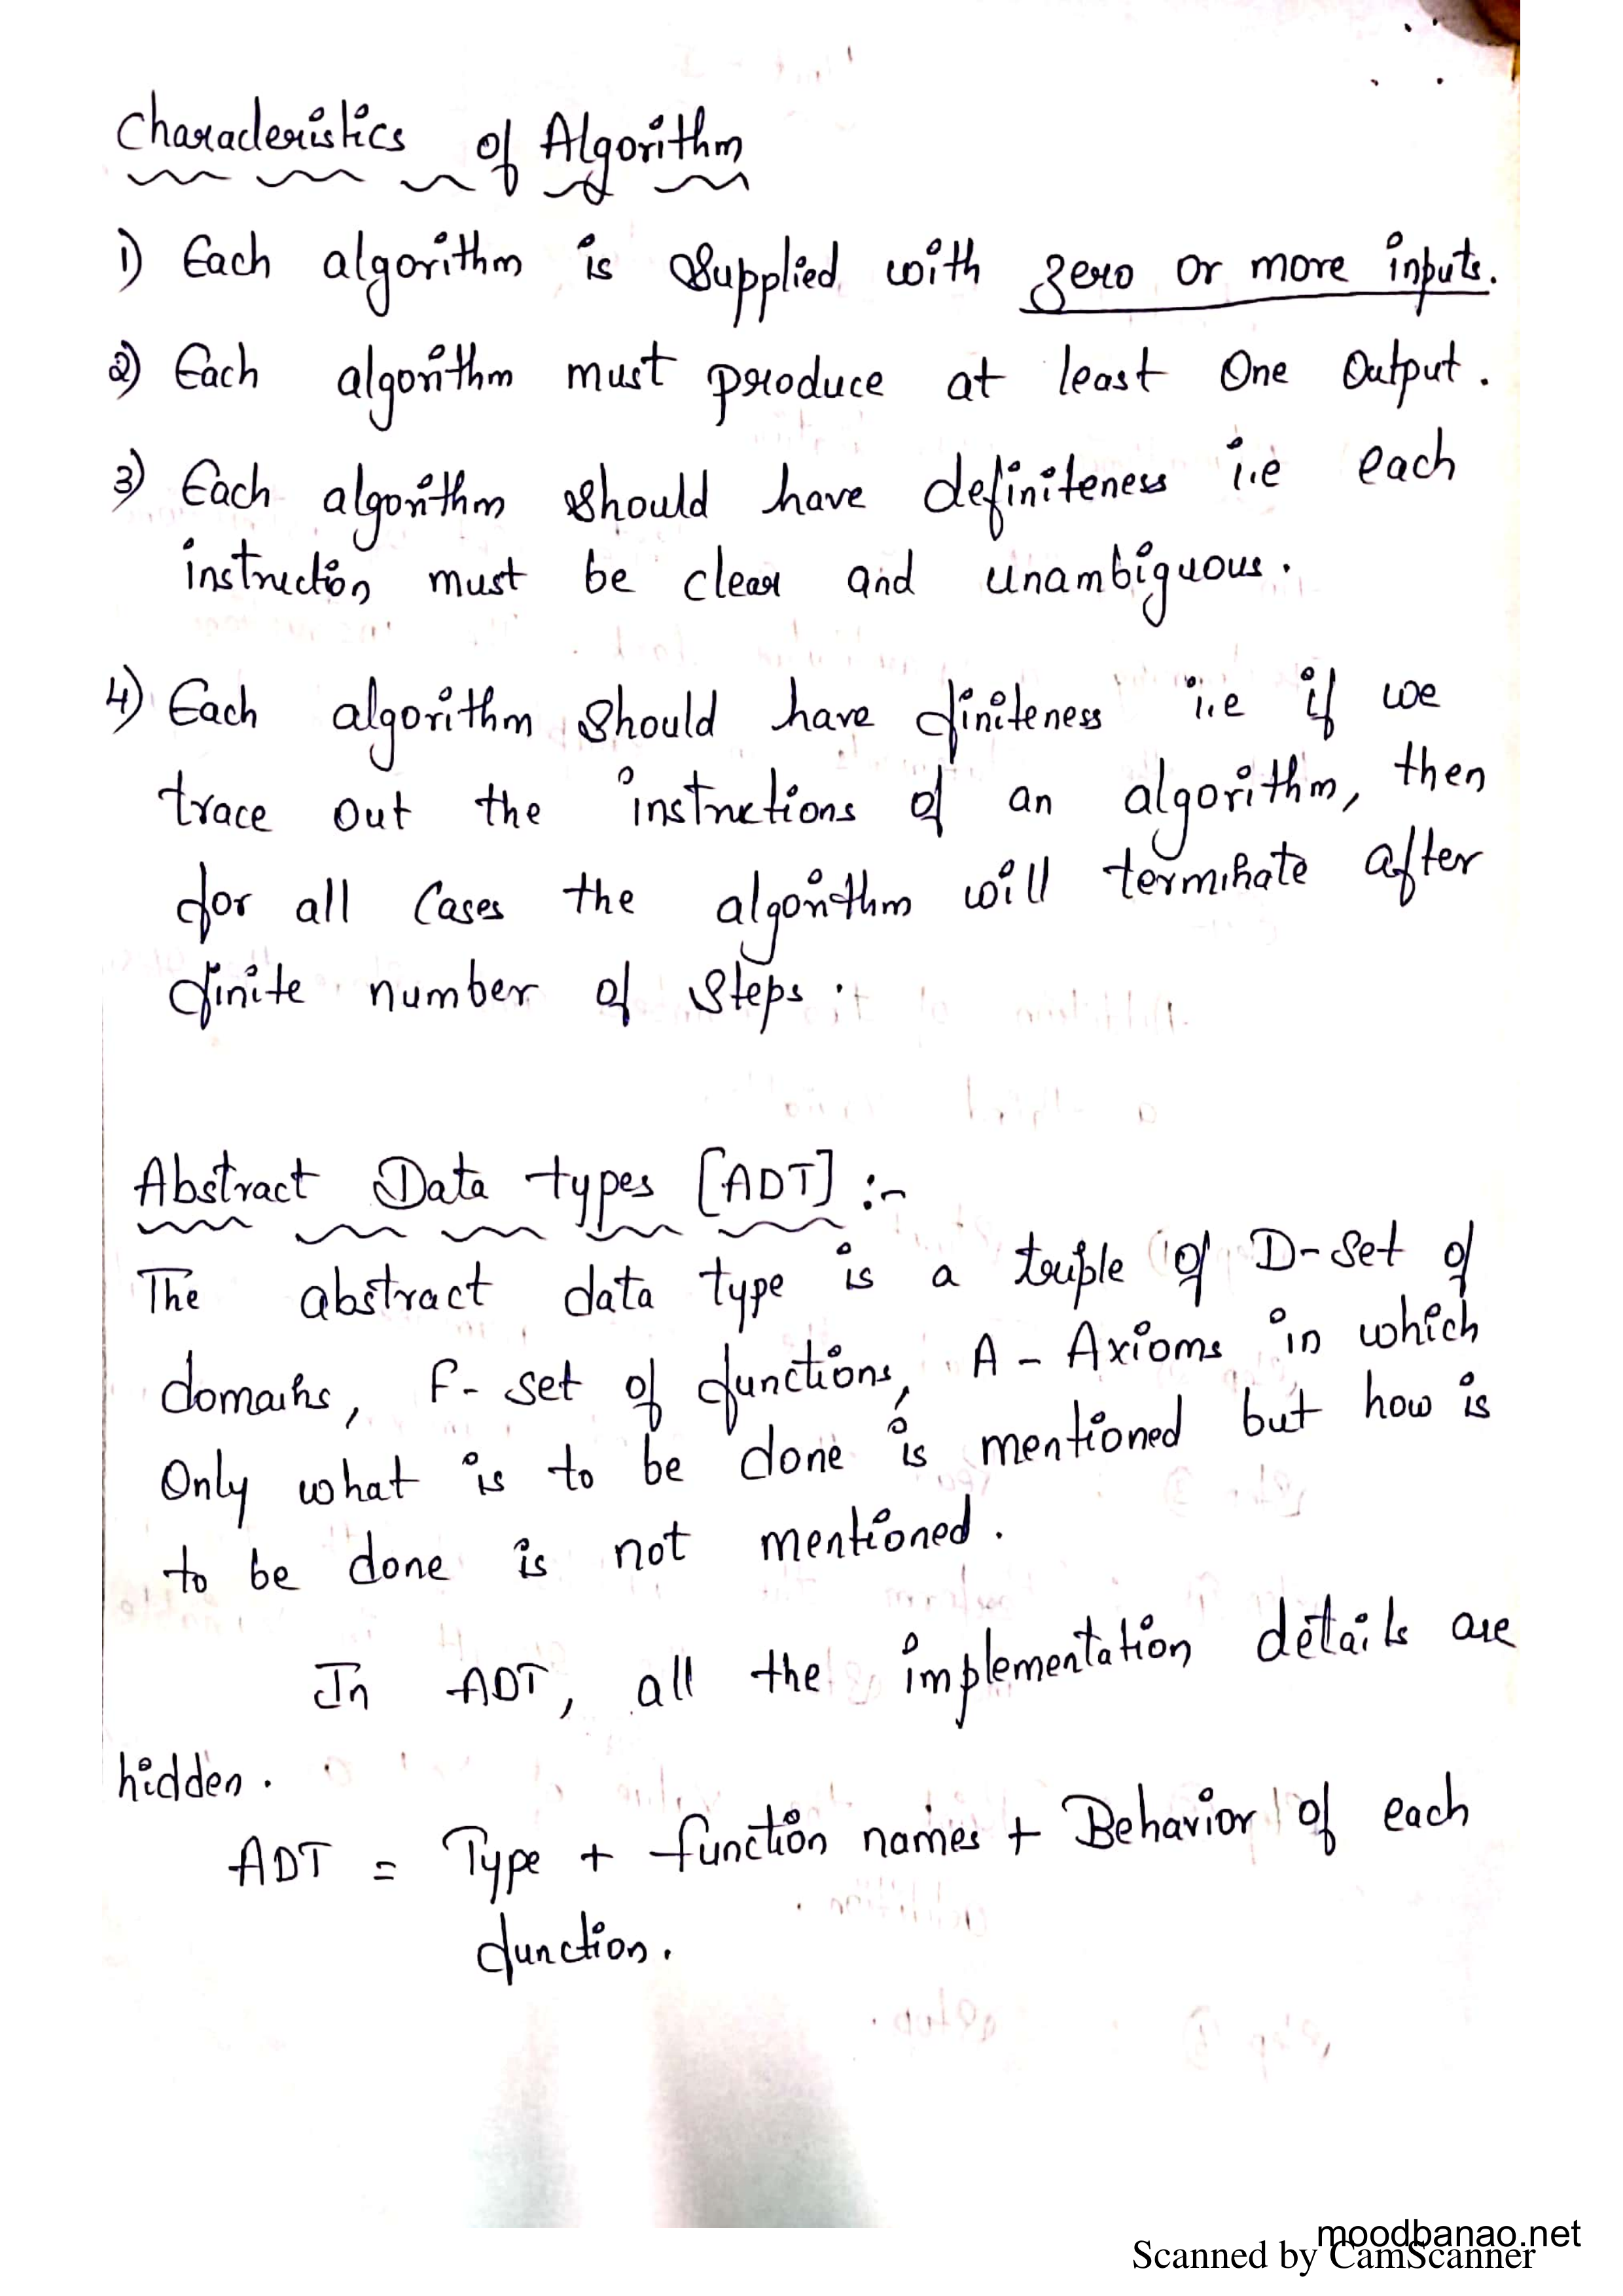 Characteristics of Algorithm
1) Each algorithm is supplied with zero or more inputs.
2) Each algorithm must produce at least One Output.
3) Each algorithm should have definiteness i.e each
instruction must be clear and unambiguous.
4) Each algorithm should have finiteness i.e if we
trace out the instructions of an algorithm, then
for all Cases the algorithm will terminate after
finite number of steps.
Abstract Data types [ADT] :-
The abstract data type is a triple of D-Set of
domains, F- set of functions, A - Axioms in which
Only what is to be done is mentioned but how is
to be done is not mentioned.
In ADT, all the implementation details are
hidden.
ADT = Type + function names + Behavior of each
function.
moodbanao.net
Scanned by CamScanner